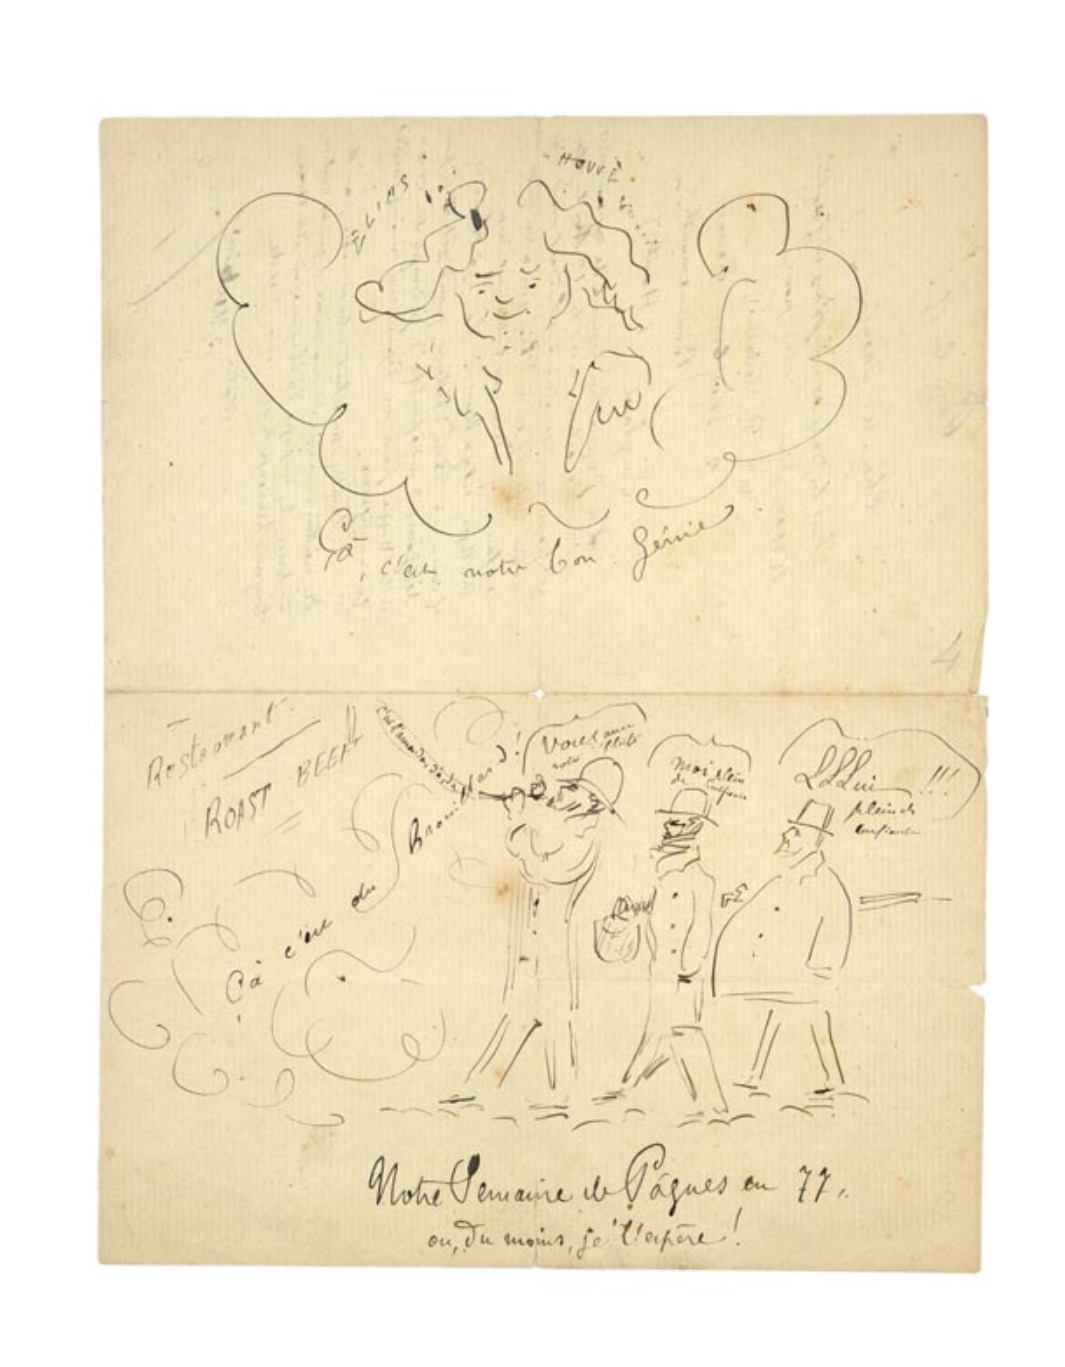 Çà, c'est notre bon Génie
4
Restaurant
ROAST BEEF
Çà c'est du Brouillard!
Vous avec
votre flute
Moi plein
de confiance
LLLui !!!
plein de
confiance
Notre Semaine de Pâques en 77.
ou, du moins, je l'espère!